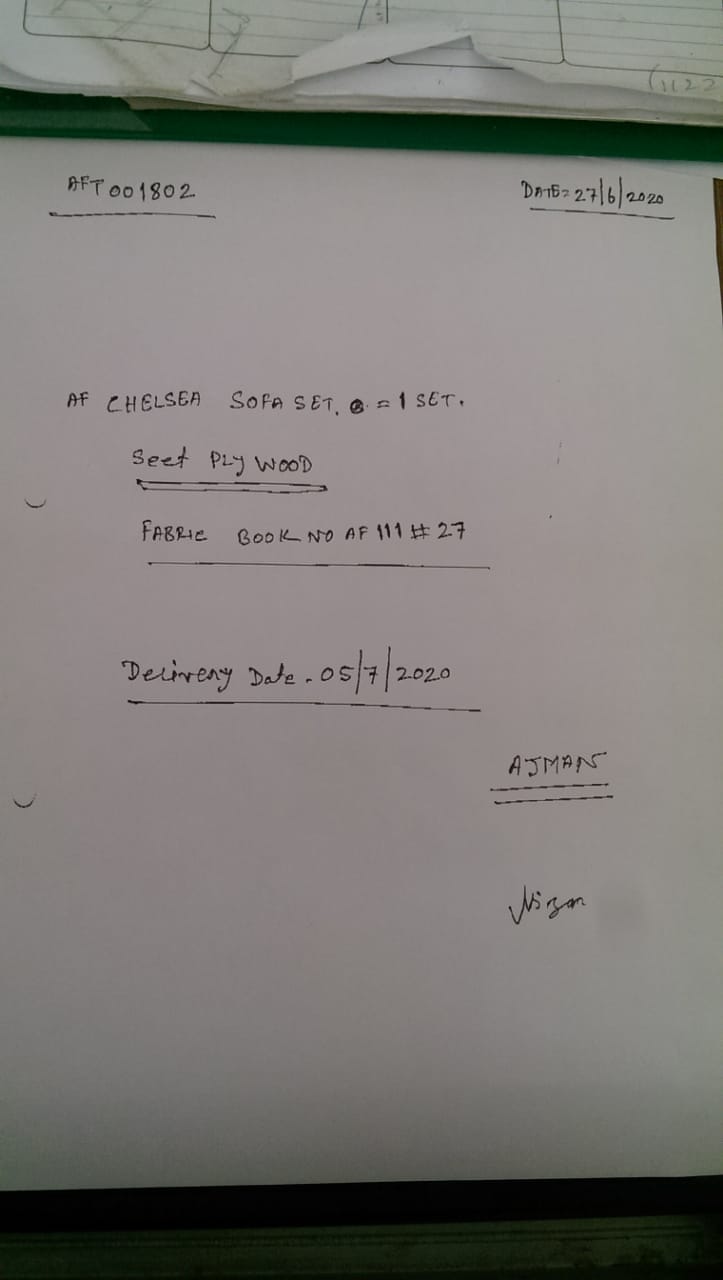 (1122
AFT001802
DATE= 27/6/2020
AF CHELSEA SOFA SET. = 1 SET.
Seet PLY WOOD
FABRIC BOOK NO AF 111 # 27
Delivery Date. 05/7/2020
AJMAN
Nizam